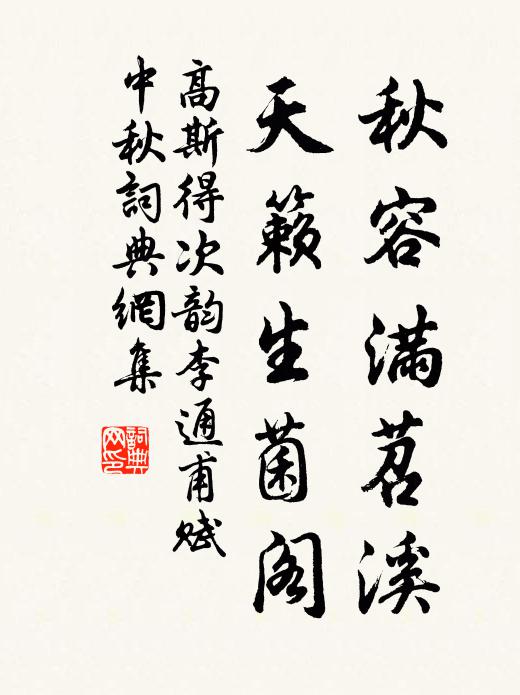 秋容满苕溪
天籁生菌阁
高斯得次韵李通甫赋
中秋詞典網集
詞典网印